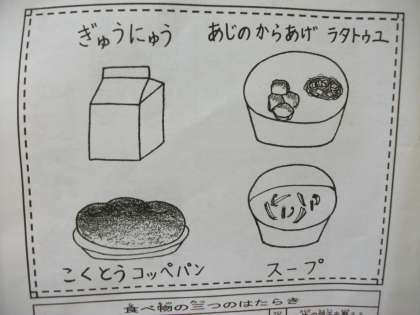 ぎゅうにゅう
あじのからあげ ラタトゥユ
こくとうコッペパン
スープ
食べ物の三つのはたらき